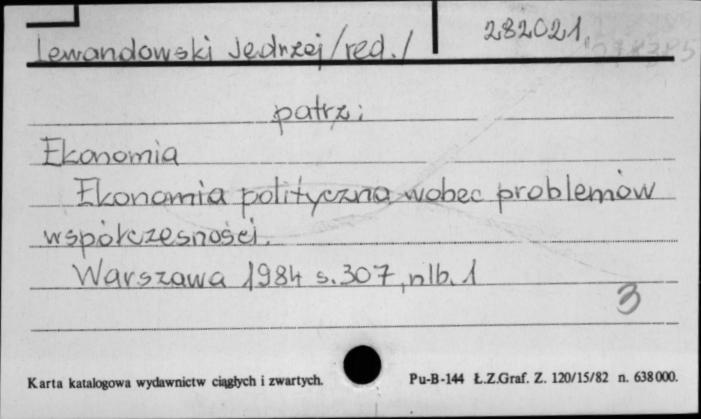 Lewandowski Jędrzej /red./ 282021
patrz:
Ekonomia
Ekonomia polityczna wobec problemów
współczesności.
Warszawa 1984 s. 307, nlb. 1
3
Karta katalogowa wydawnictw ciągłych i zwartych. Pu-B-144 Ł.Z.Graf. Z. 120/15/82 n. 638000.